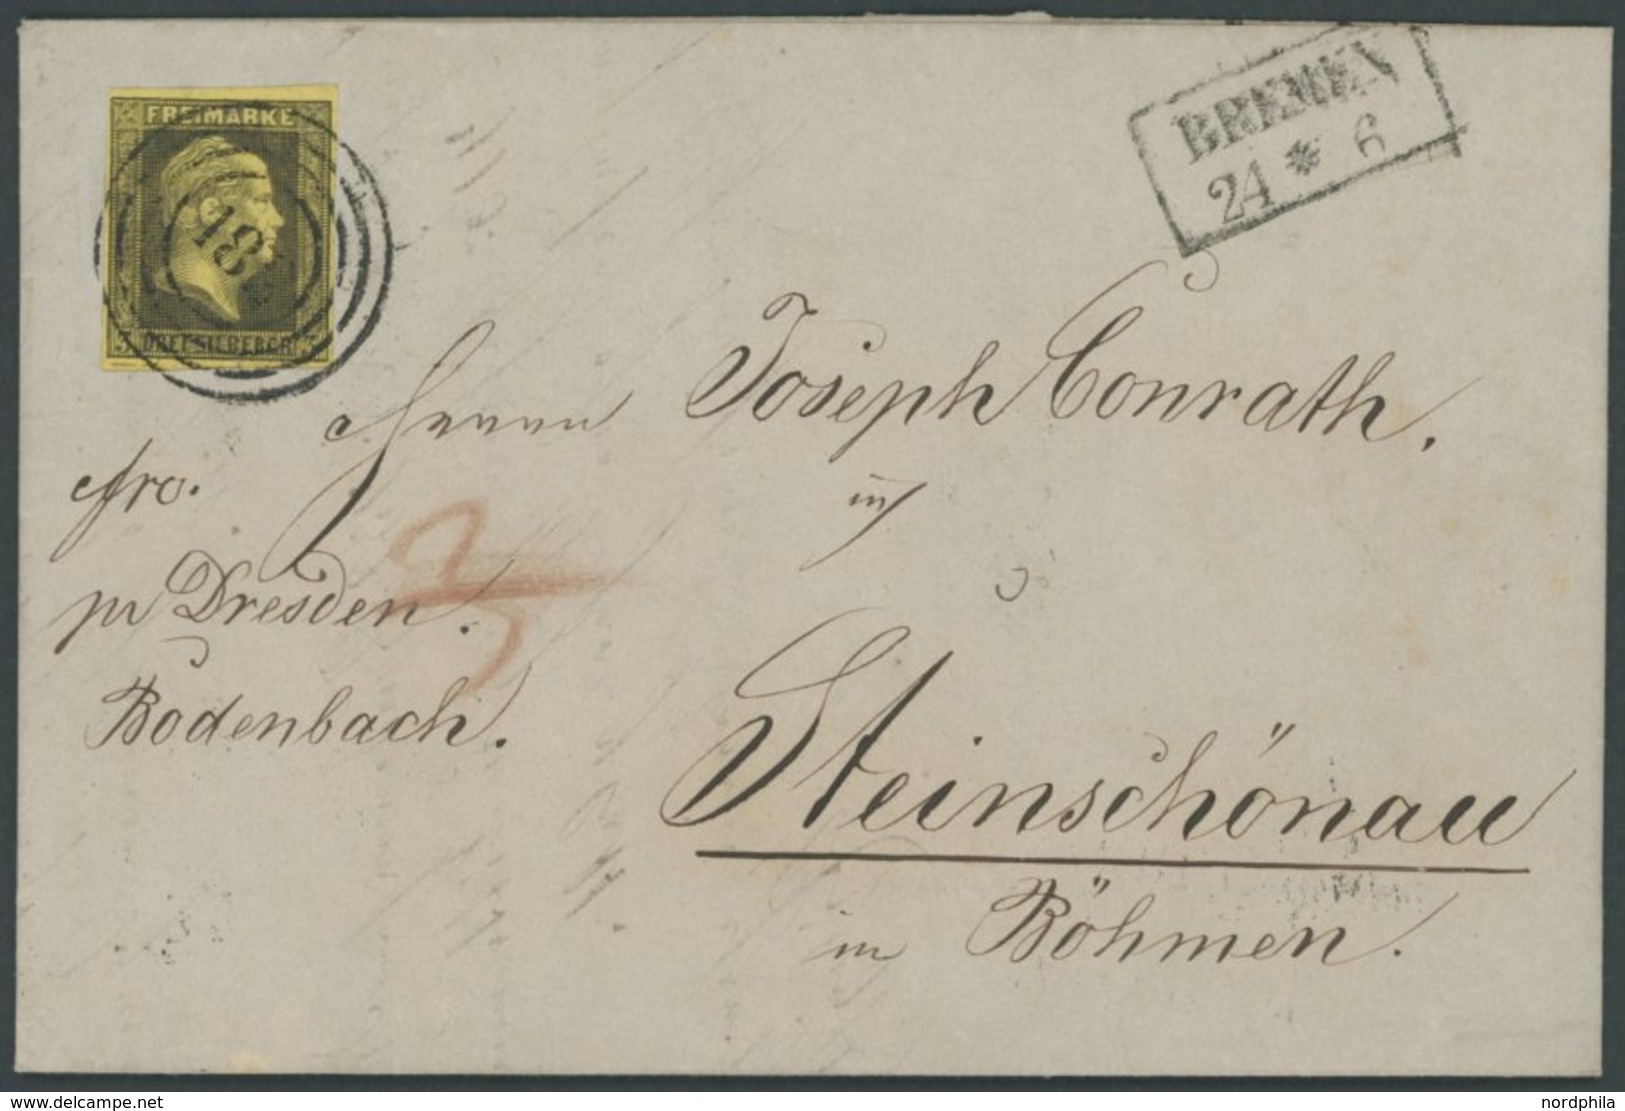 FREIMARKE
183
3 DREI SILBERGR. 3
BREMEN
24 * 6
Herrn Joseph Conrath.
in
fro.
pr Dresden.
Bodenbach.
3
Steinschönau
in Böhmen.
www.delcampe.net
nordphila